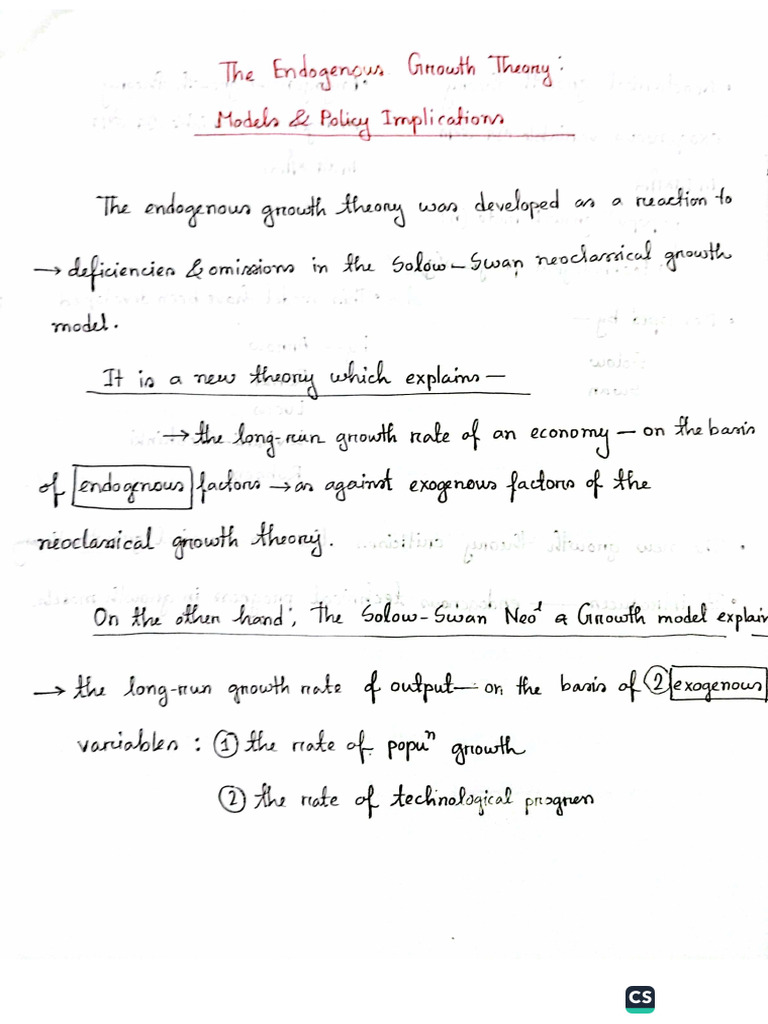 The Endogenous Growth Theory:
Models & Policy Implications
The endogenous growth theory was developed as a reaction to
→ deficiencies & omissions in the Solow-Swan neoclassical growth
model.
It is a new theory which explains —
→ the long-run growth rate of an economy — on the basis
of endogenous factors → as against exogenous factors of the
neoclassical growth theory.
On the other hand, The Solow-Swan Neo¹ a Growth model explain
→ the long-run growth rate of output — on the basis of ② exogenous
variables : ① the rate of popuⁿ growth
② the rate of technological progress
CS